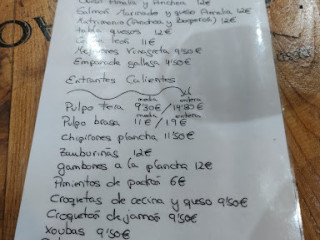 Salmón Marinado y queso Brralla 12€
Matrimonio (Anchoa y boquerón) 12€
tabla quesos 12€
Cecina león 11€
Mejillones Vinagreta 9'50€
Empanada gallega 4'50€
Entrantes Calientes
media entera
Pulpo feira 9'30€/19'80€
media entera
Pulpo brasa 11€/19€
Chipirones plancha 11'50€
Zamburiñas 12€
gambones a la plancha 12€
Pimientos de padrón 6€
Croquetas de cecina y queso 9'50€
Croquetas de jamón 9'50€
Xoubas 9'50€